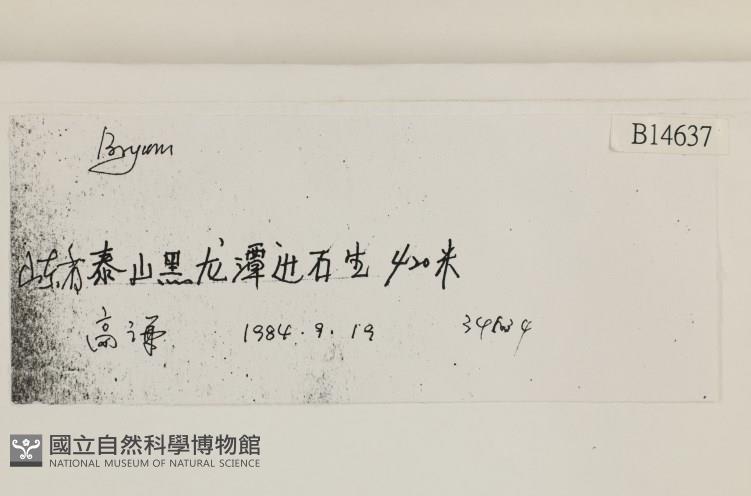 Bryum
B14637
山东省泰山黑龙潭近石生 420米
高谦 1984.9.19
國立自然科學博物館
NATIONAL MUSEUM OF NATURAL SCIENCE